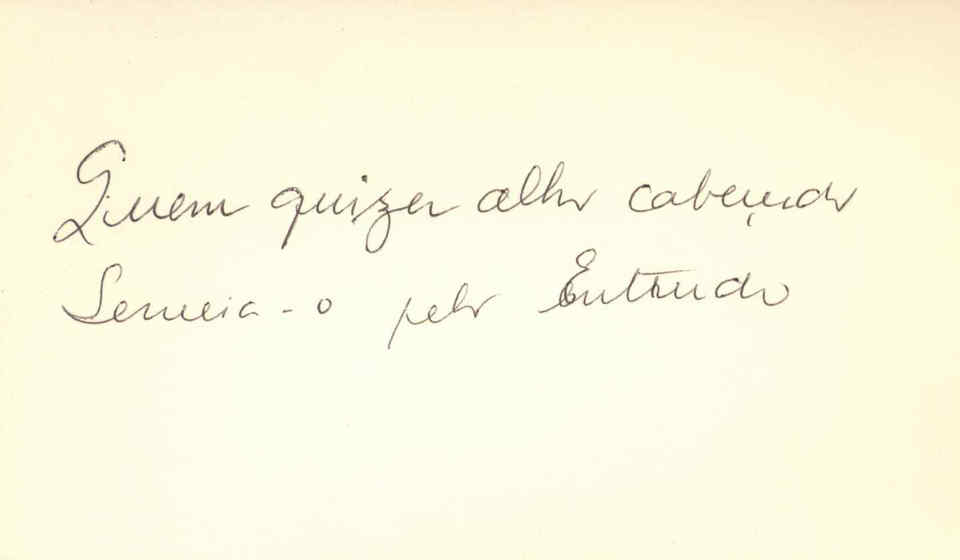 Quem quizer alho cabeçudo
Semeia-o pelo Entrudo